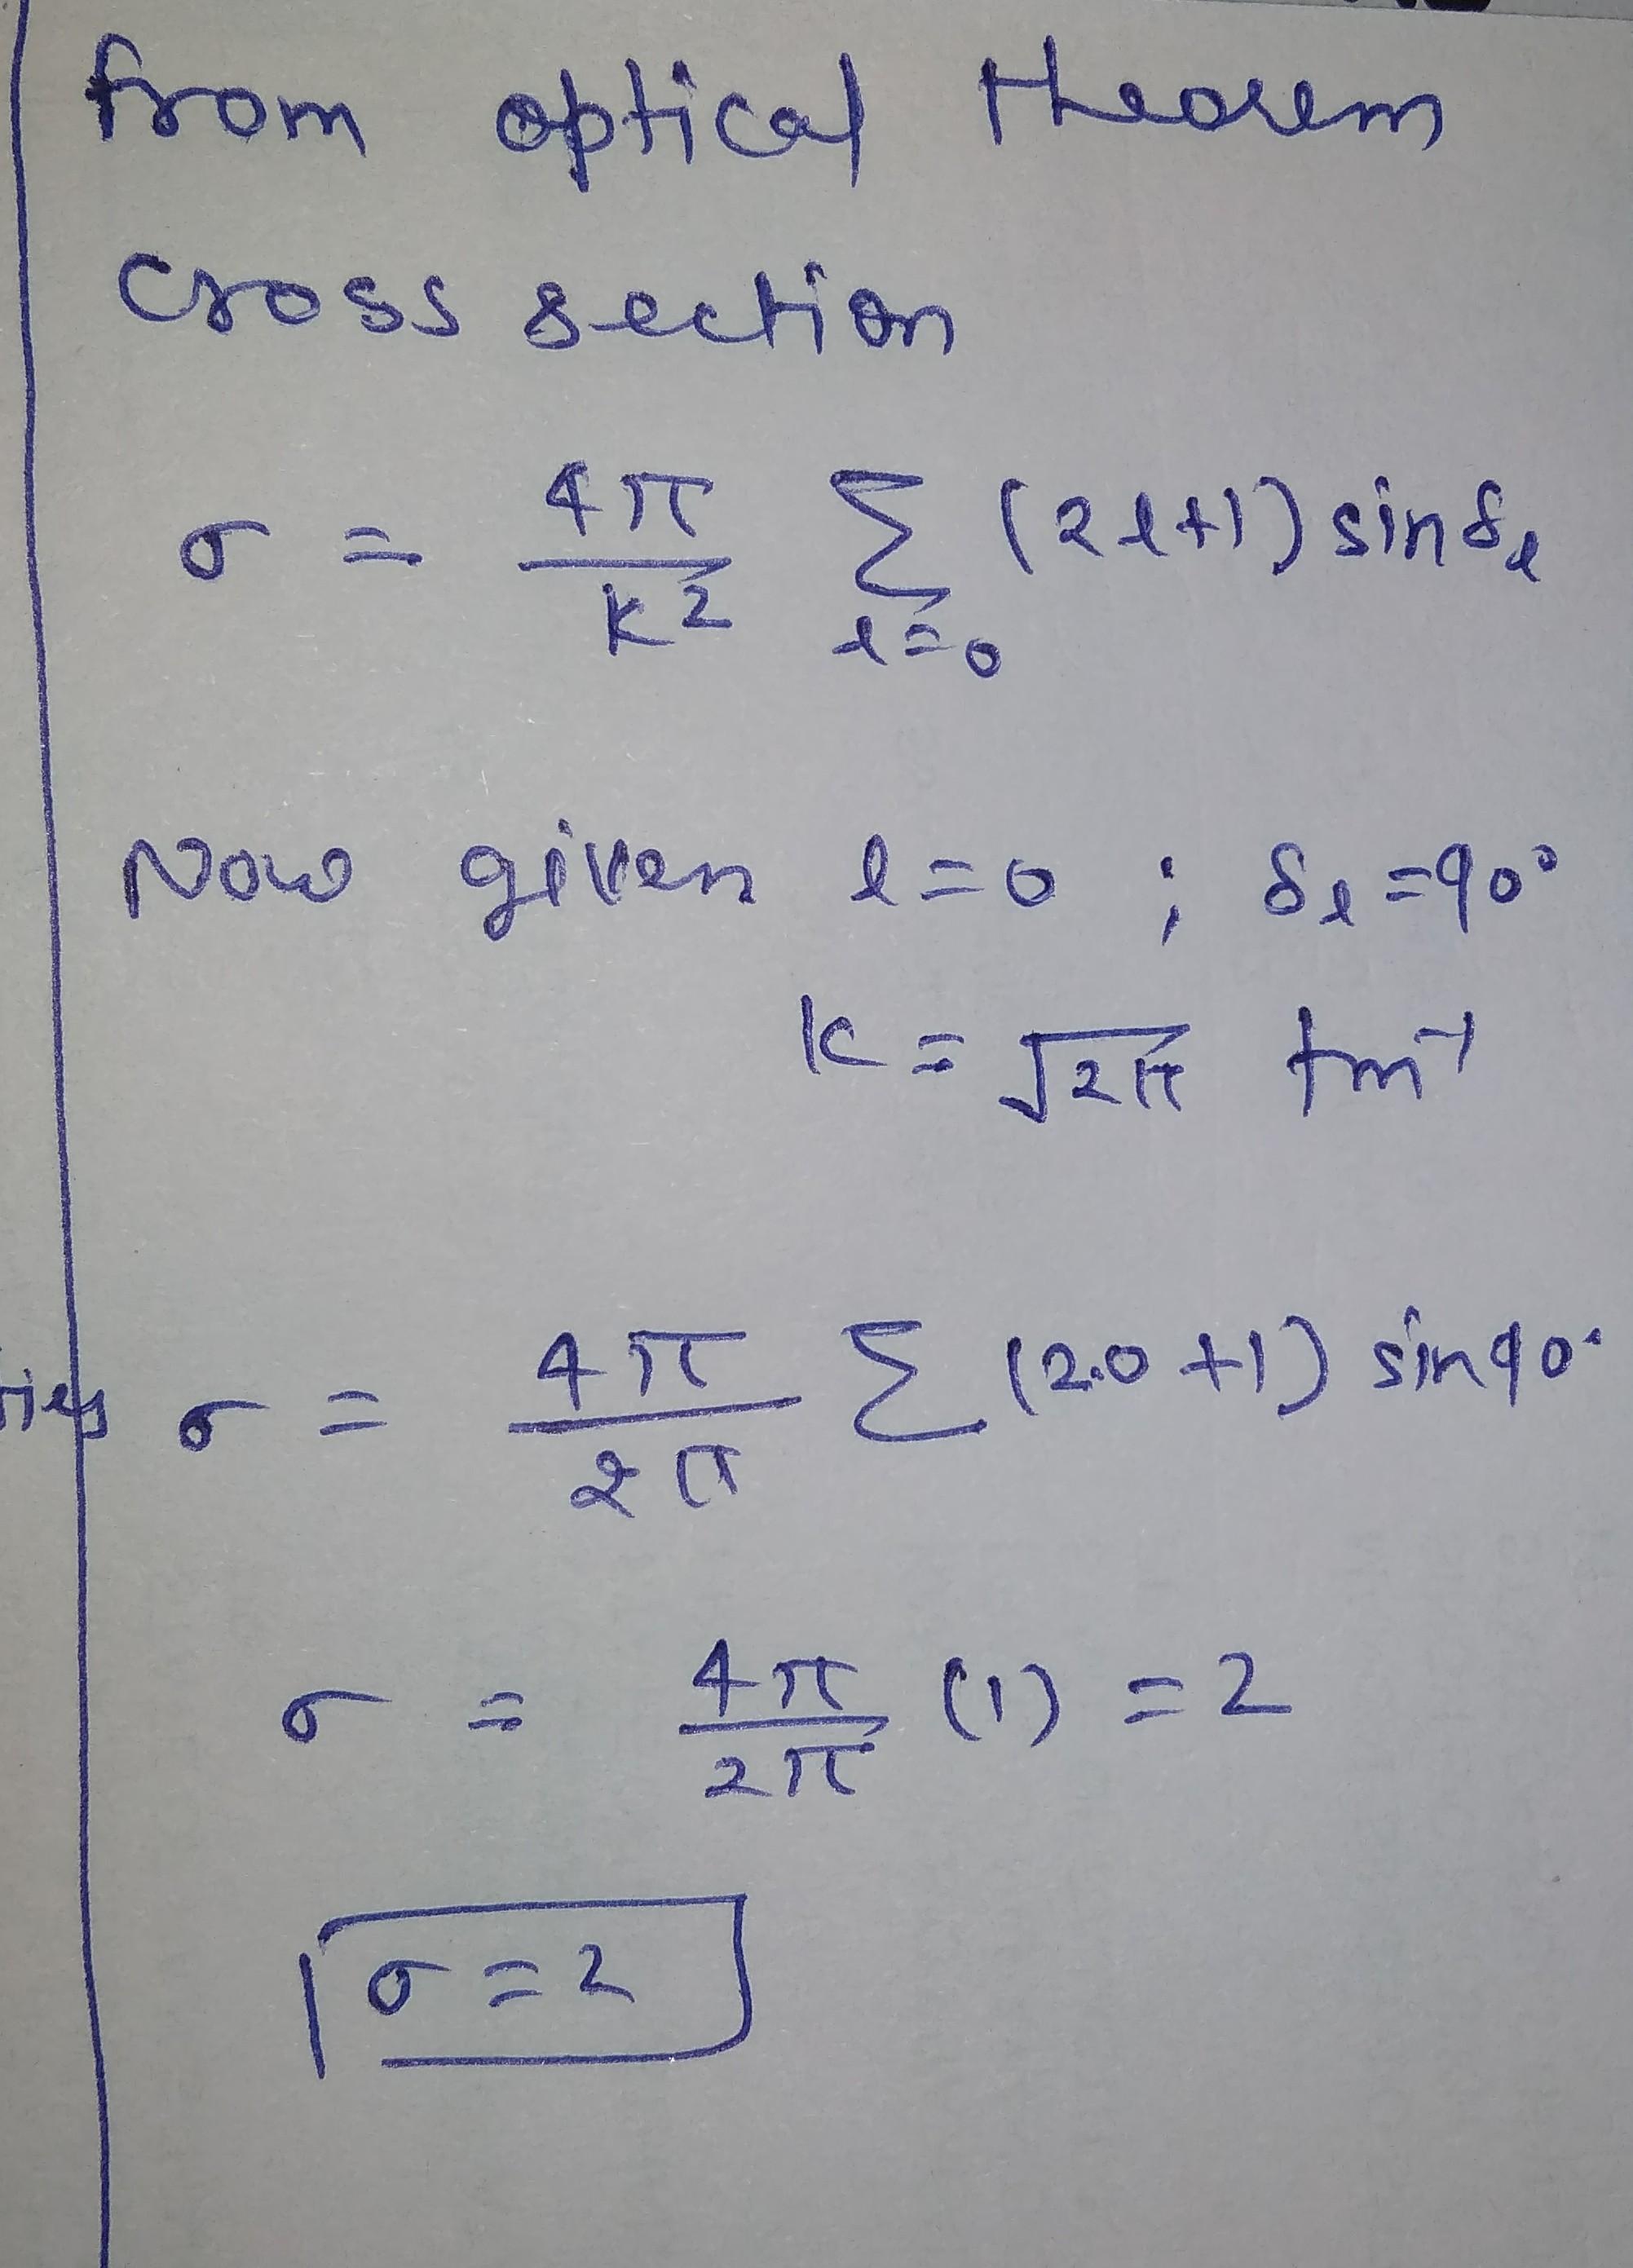 from optical theorem
cross section
σ = 4π/k² Σ l=0 (2l+1) sin δl
Now given l=0 ; δl=90°
k = √2π fm⁻¹
σ = 4π/2π Σ (2.0+1) sin 90°
σ = 4π/2π (1) = 2
σ = 2